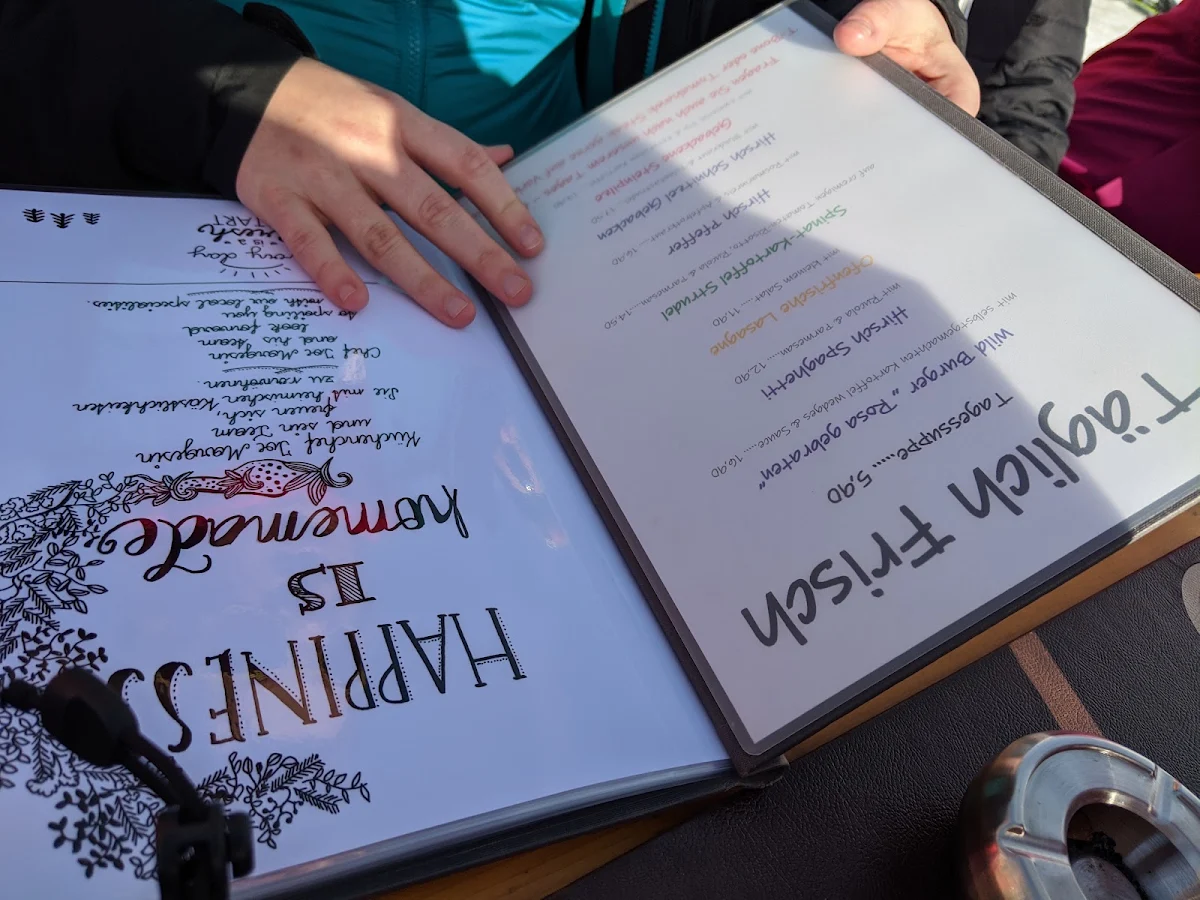 Täglich Frisch
Tagessuppe.... 5,90
Wild Burger „Rosa gebraten"
mit selbstgemachten Kartoffel Wedges & Sauce.... 16,90
Hirsch Spaghetti
mit Rucola & Parmesan..... 12,90
Ofenfrische Lasagne
mit kleinem Salat .... 11,90
Spinat-Kartoffel Strudel
auf cremigen Tomaten Risotto, Rucola & Parmesan.... 14,50
Hirsch Pfeffer
Hirsch Schnitzel Gebacken
Gebackene Steinpilze
Fragen Sie auch nach unserem Tages
HAPPINESS
IS
homemade
Küchenchef Joe Mangesin
und sein Team
freuen sich,
Sie mit heimischen Köstlichkeiten
zu verwöhnen.
Chef Joe Mangesin
and his team
look forward
to spoiling you
with our local specialities
day
IS A
fresh
START